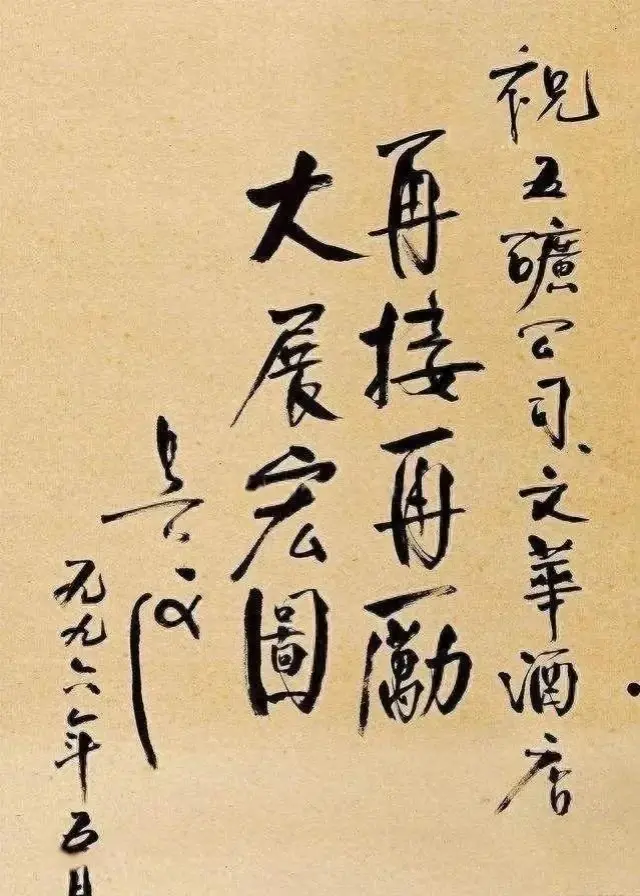 祝五礦公司、文華酒店
再接再勵
大展宏圖
吴仪
一九九六年五月